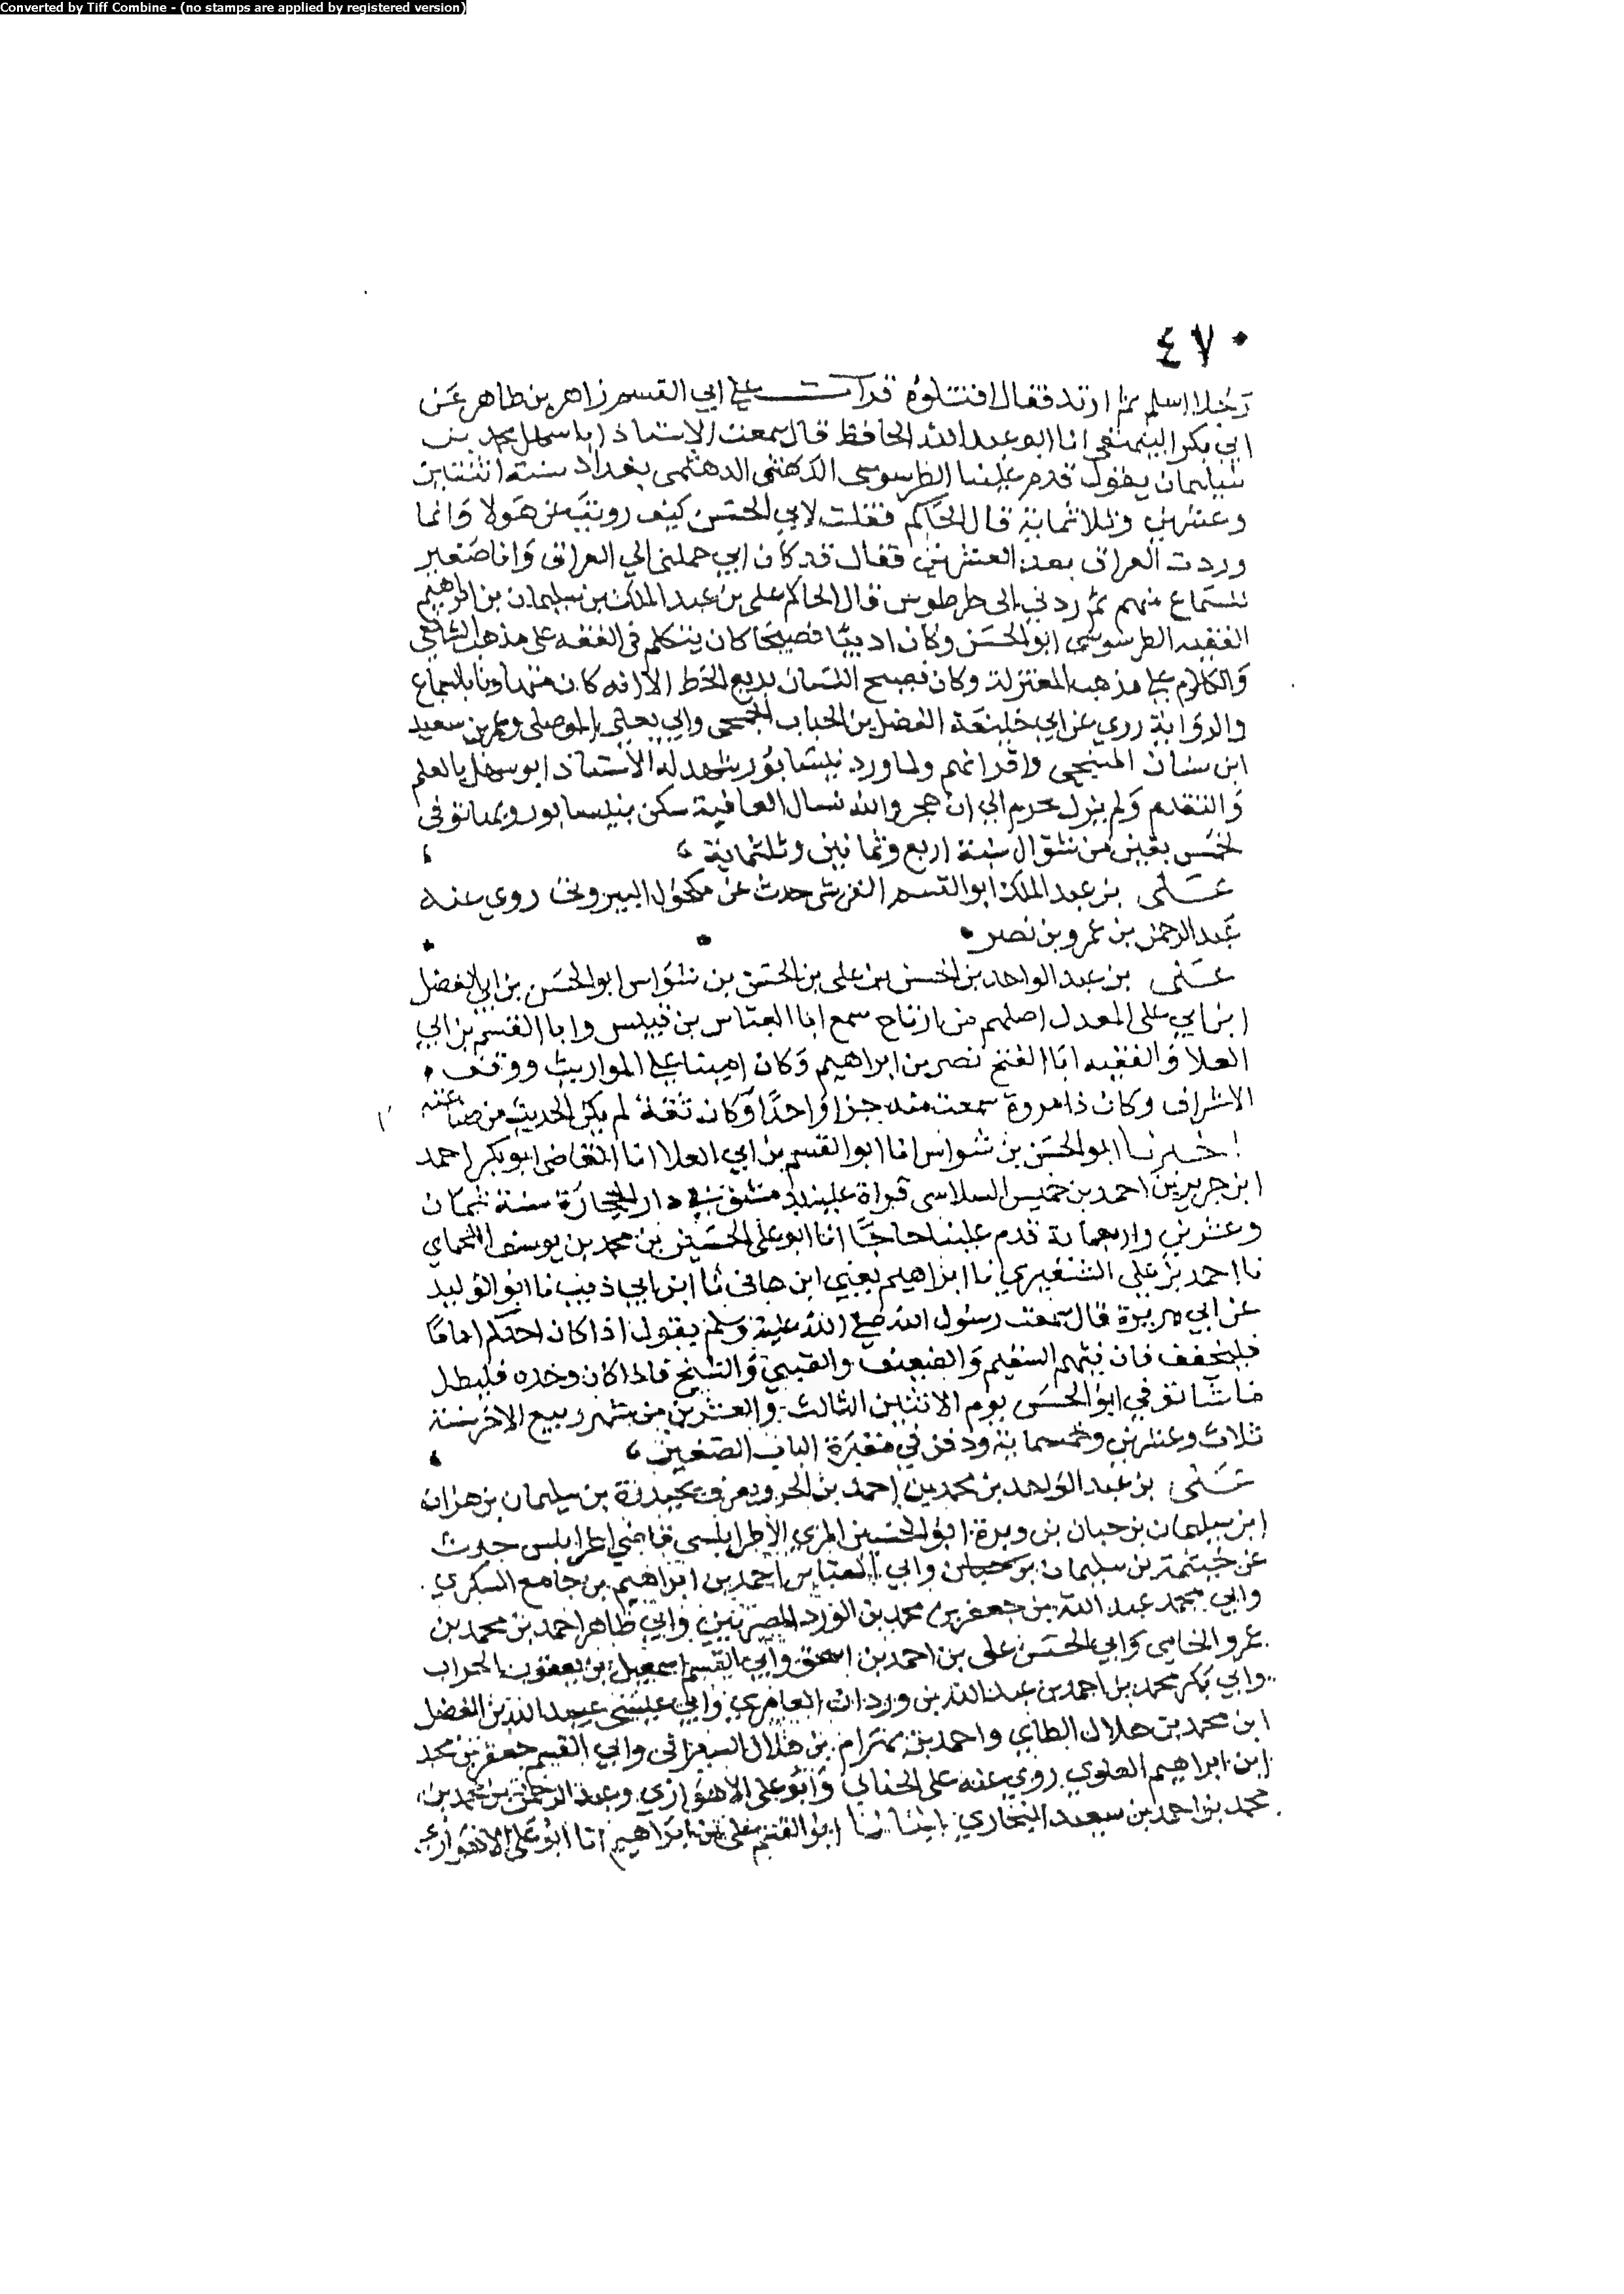 Converted by Tiff Combine - (no stamps are applied by registered version)
٤٧٠
رجلا اسلم ثم ارتد فقال اقتلوه قرات على ابي القسم زاهر بن طاهر عن
ابي بكر البيهقي انا ابو عبد الله الحافظ قال سمعت الاستاذ ابا سهل محمد بن
سليمان يقول قدم علينا الطرسوسي بغداد سنة اثنتين
وعشرين وثلاثماية قال الحاكم فقلت لابي الحسن كيف رويت عن هولا وانما
وردت العراق بعد العشرين فقال قد كان ابي حملني الي العراق وانا صغير
للسماع منهم ثم ردني الى طرطوس قال الحاكم علي بن عبد الملك بن سليمان بن ابراهيم
الفقيه الطرسوسي ابو الحسن وكان اديبا فصيحا كان يتكلم في الفقه على مذهب الشافعي
والكلام على مذهب المعتزلة وكان فصيح اللسان بديع الخط الا انه كان متهاونا بالسماع
والرواية روي عن ابي خليفة الفضل بن الحباب الجمحي وابي يعلى الموصلي وعمر بن سعيد
ابن سنان المنبجي واقرانهم ولما ورد نيسابور شهد له الاستاذ ابو سهل بالعلم
والتقدم ولم يزل محرم الي ان هجر والله نسال العافية سكن نيسابور وبها توفي
لخمس بقين من شوال سنة اربع وثمانين وثلثماية
علي بن عبد الملك ابو القسم القرشي حدث عن مكحول البيروتي روي عنه
عبد الرحمن بن عمرو بن نصر
علي بن عبد الواحد بن الحسن بن علي بن الحسن بن شواس ابو الحسن بن ابي الفضل
ابن ابي علي المعدل اصلهم من ارتاح سمع ابا العباس بن قبيس وابا القسم بن ابي
العلا والفقيه ابا الفتح نصر بن ابراهيم وكان امينا على المواريث ووقف
الاشراف وكان ذا مروة سمعت منه جزا واحدا وكان ثقة لم يكن الحديث من صناعته
اخبرنا ابو الحسن بن شواس انا ابو القسم بن ابي العلا انا القاضي ابو بكر احمد
ابن جرير بن احمد بن خميس السلاسي قراة عليه بدمشق في دار الحجارة سنة ثمان
وعشرين واربعماية قدم علينا حاجا انا ابو علي الحسين بن محمد بن يوسف اللحماي
نا احمد بن علي نا ابراهيم يعني ابن هاني نا ابن ابي ذيب نا ابو الوليد
عن ابي هريرة قال سمعت رسول الله صلى الله عليه وسلم يقول اذا كان احدكم اماما
فليخفف فان فيهم السقيم والضعيف والصبي والشيخ فاذا كان وحده فليطل
ما شا توفي ابو الحسن يوم الاثنين الثالث والعشرين من شهر ربيع الاخر سنة
ثلاث وعشرين وخمسماية ودفن في مقبرة الباب الصغير
علي بن عبد الواحد بن محمد بن احمد بن الحر ويعرف بحيدرة بن سليمان بن هزان
ابن سليمان بن حبان بن وبرة ابو الحسين المري الاطرابلسي قاضي اطرابلس حدث
عن خيثمة بن سليمان وابي العباس احمد بن ابراهيم بن جامع السكري
وابي محمد عبد الله بن جعفر بن محمد بن الورد المصريين وابي طاهر احمد بن محمد بن
عمرو الخامي وابي الحسن علي بن احمد بن اسحق وابي القسم اسمعيل بن يعقوب الجراب
وابي بكر محمد بن احمد بن عبد الله بن وردان العامري وابي عيسى عبيد الله بن الفضل
ابن محمد بن هلال الطاي واحمد بن بهرام بن هلال السيرافي وابي القسم جعفر بن محمد
ابن ابراهيم العلوي روي عنه علي الحنائي وابو علي الاهوازي وعبد الرحمن بن محمد بن
محمد بن احمد بن سعيد البخاري انبانا ابو القسم علي بن ابراهيم انا ابو علي الاهوازي